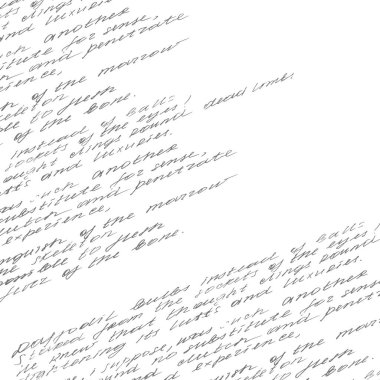 and luxuries.
another
stitute for sense,
and penetrate
rience,
of the marrow
skeleton
ble to flesh
of the bone.
instead of balls
sockets of the eyes!
ought clings round dead limbs
and luxuries.
another
substitute for sense,
clutch and penetrate
experience,
nguish of the marrow
he skeleton
to flesh
of the bone.
Daffodil bulbs instead of balls
Stared from the sockets of the eyes!
He knew that thought clings round
tightening its lusts and luxuries.
I suppose, was such another
found no substitute for sense
clutch and penetrate
experience,
nguish of the marrow
skeleton
to flesh
bone.